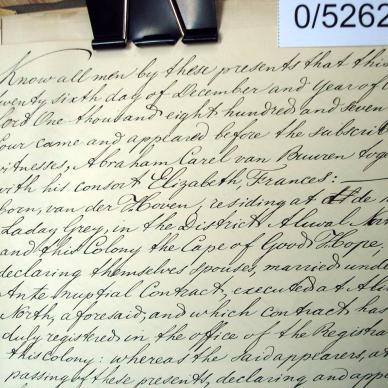 0/5262
Know all men by these presents that this
twenty sixth day of December and Year of
One thousand eight hundred and seven
four came and appeared before the subscri
witnesses, Abraham Carel van Buuren tog
with his consort Elizabeth, Frances:
born, van der Hoven, residing at de
Laday Grey, in the District, Aliwal Nor
and this Colony the Cape of Good Hope,
declaring themselves spouses, married und
Ante nuptial Contract, executed at Aliw
North, aforesaid, and which contract has
duly registered in, the office of the Registra
this colony: whereas the said appearers, a
passing of these presents, declaring and app